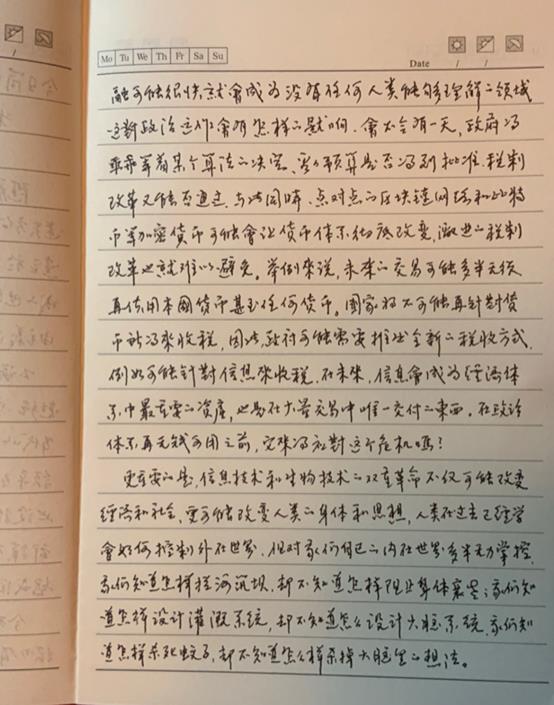 Mo Tu We Th Fr Sa Su
Date / /
融可能很快就會成为没有任何人类能夠理解的领域
这對政治运作會有怎样的影响。會不会有一天,政府得
乖乖等着某个算法的决定,看看预算是否得到批准,税制
改革又能否通过。与此同時,点对点的区块链网络和比特
币等加密货币可能會让货币体系彻底改变,激进的税制
改革也就难以避免。举例來说,未来的交易可能多半无须
再使用本國货币甚至任何货币。國家将不可能再针對货
币所得來收税,因此,政府可能需要推出全新的税收方式,
例如可能针對信息來收税。在未來,信息會成为经濟体
系中最重要的资產,也是在大量交易中唯一交付的東西。在政治
体系再无钱可用之前,它來得及應對这个危机嗎?
更重要的是,信息技术和生物技术的双重革命不仅可能改变
经濟和社会,更可能改变人类的身体和思想,人类在过去已经学
會如何控制外在世界,但对我们自己的内在世界多半无力掌控,
我们知道怎样拦河沉坝,却不知道怎样阻止身体衰老;我们知
道怎样设计灌溉系统,却不知道怎么设计大脑系统,我们知
道怎样杀死蚊子,却不知道怎么样杀掉大脑里的想法。